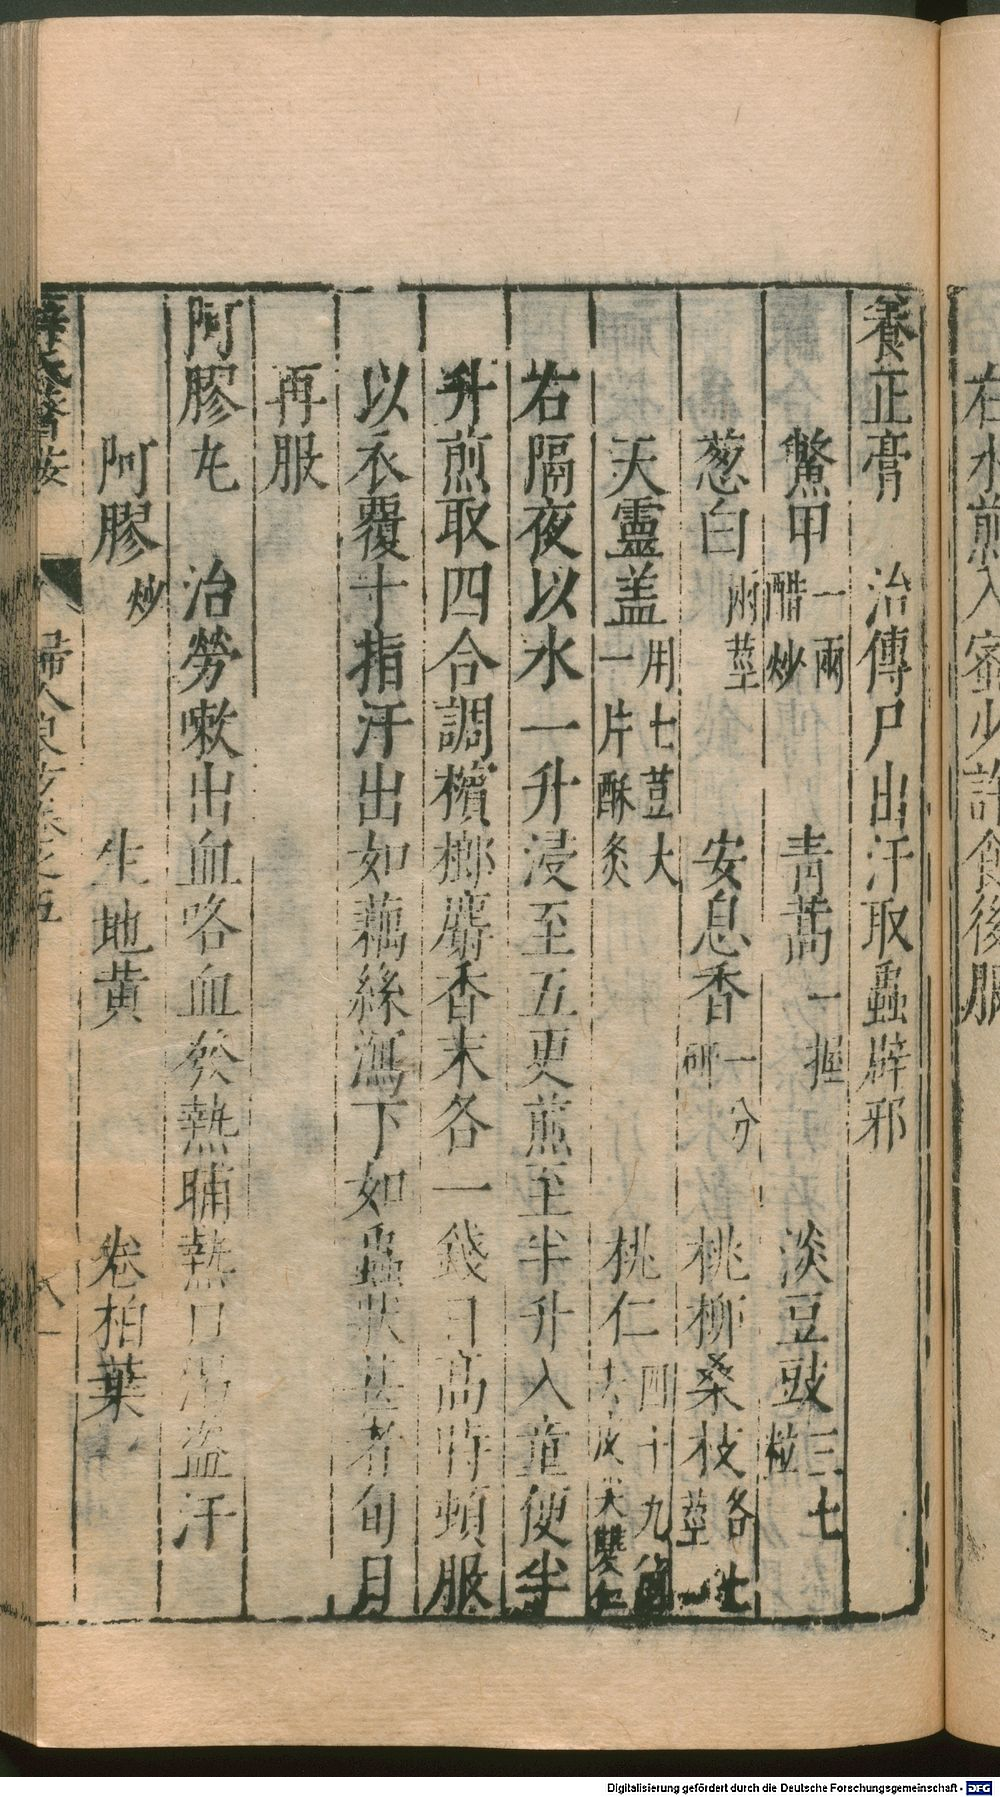 右水煎入蜜少許食後服
養正膏　治傳尸出汗取蟲辟邪
鱉甲一兩醋炒　青蒿一握　淡豆豉三七粒
葱白兩莖　安息香一分研　桃柳桑枝各七莖
天靈盖用七荳大一片酥灸　桃仁四十九個去皮尖雙仁
右隔夜以水一升浸至五更煎至半升入童便半
升煎取四合調檳榔麝香末各一錢日高時頻服
以衣覆十指汗出如藕絲瀉下如蟲狀甚者旬日
再服
阿膠丸　治勞嗽出血咯血發熱晡熱口渴盜汗
阿膠炒　生地黄　卷柏葉
薛氏醫按　婦人良方卷之五
Digitalisierung gefördert durch die Deutsche Forschungsgemeinschaft - DFG